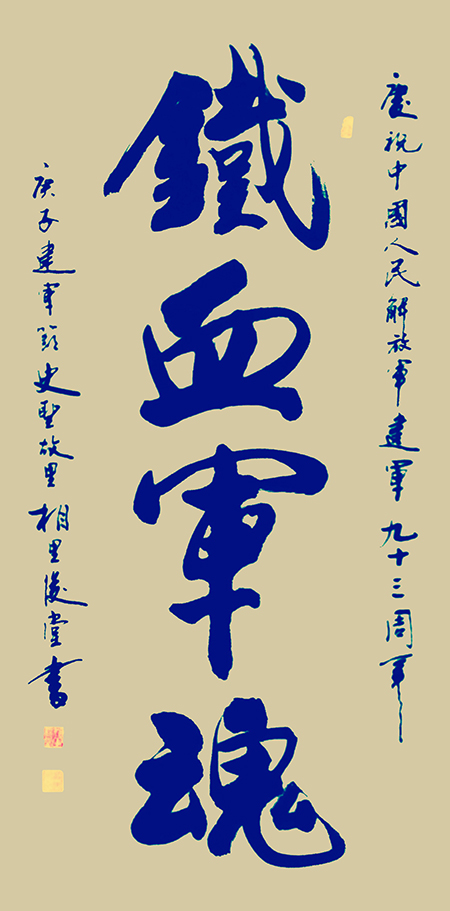 慶祝中國人民解放軍建軍九十三周年
鐵血軍魂
庚子建軍節史聖故里相里後堂書